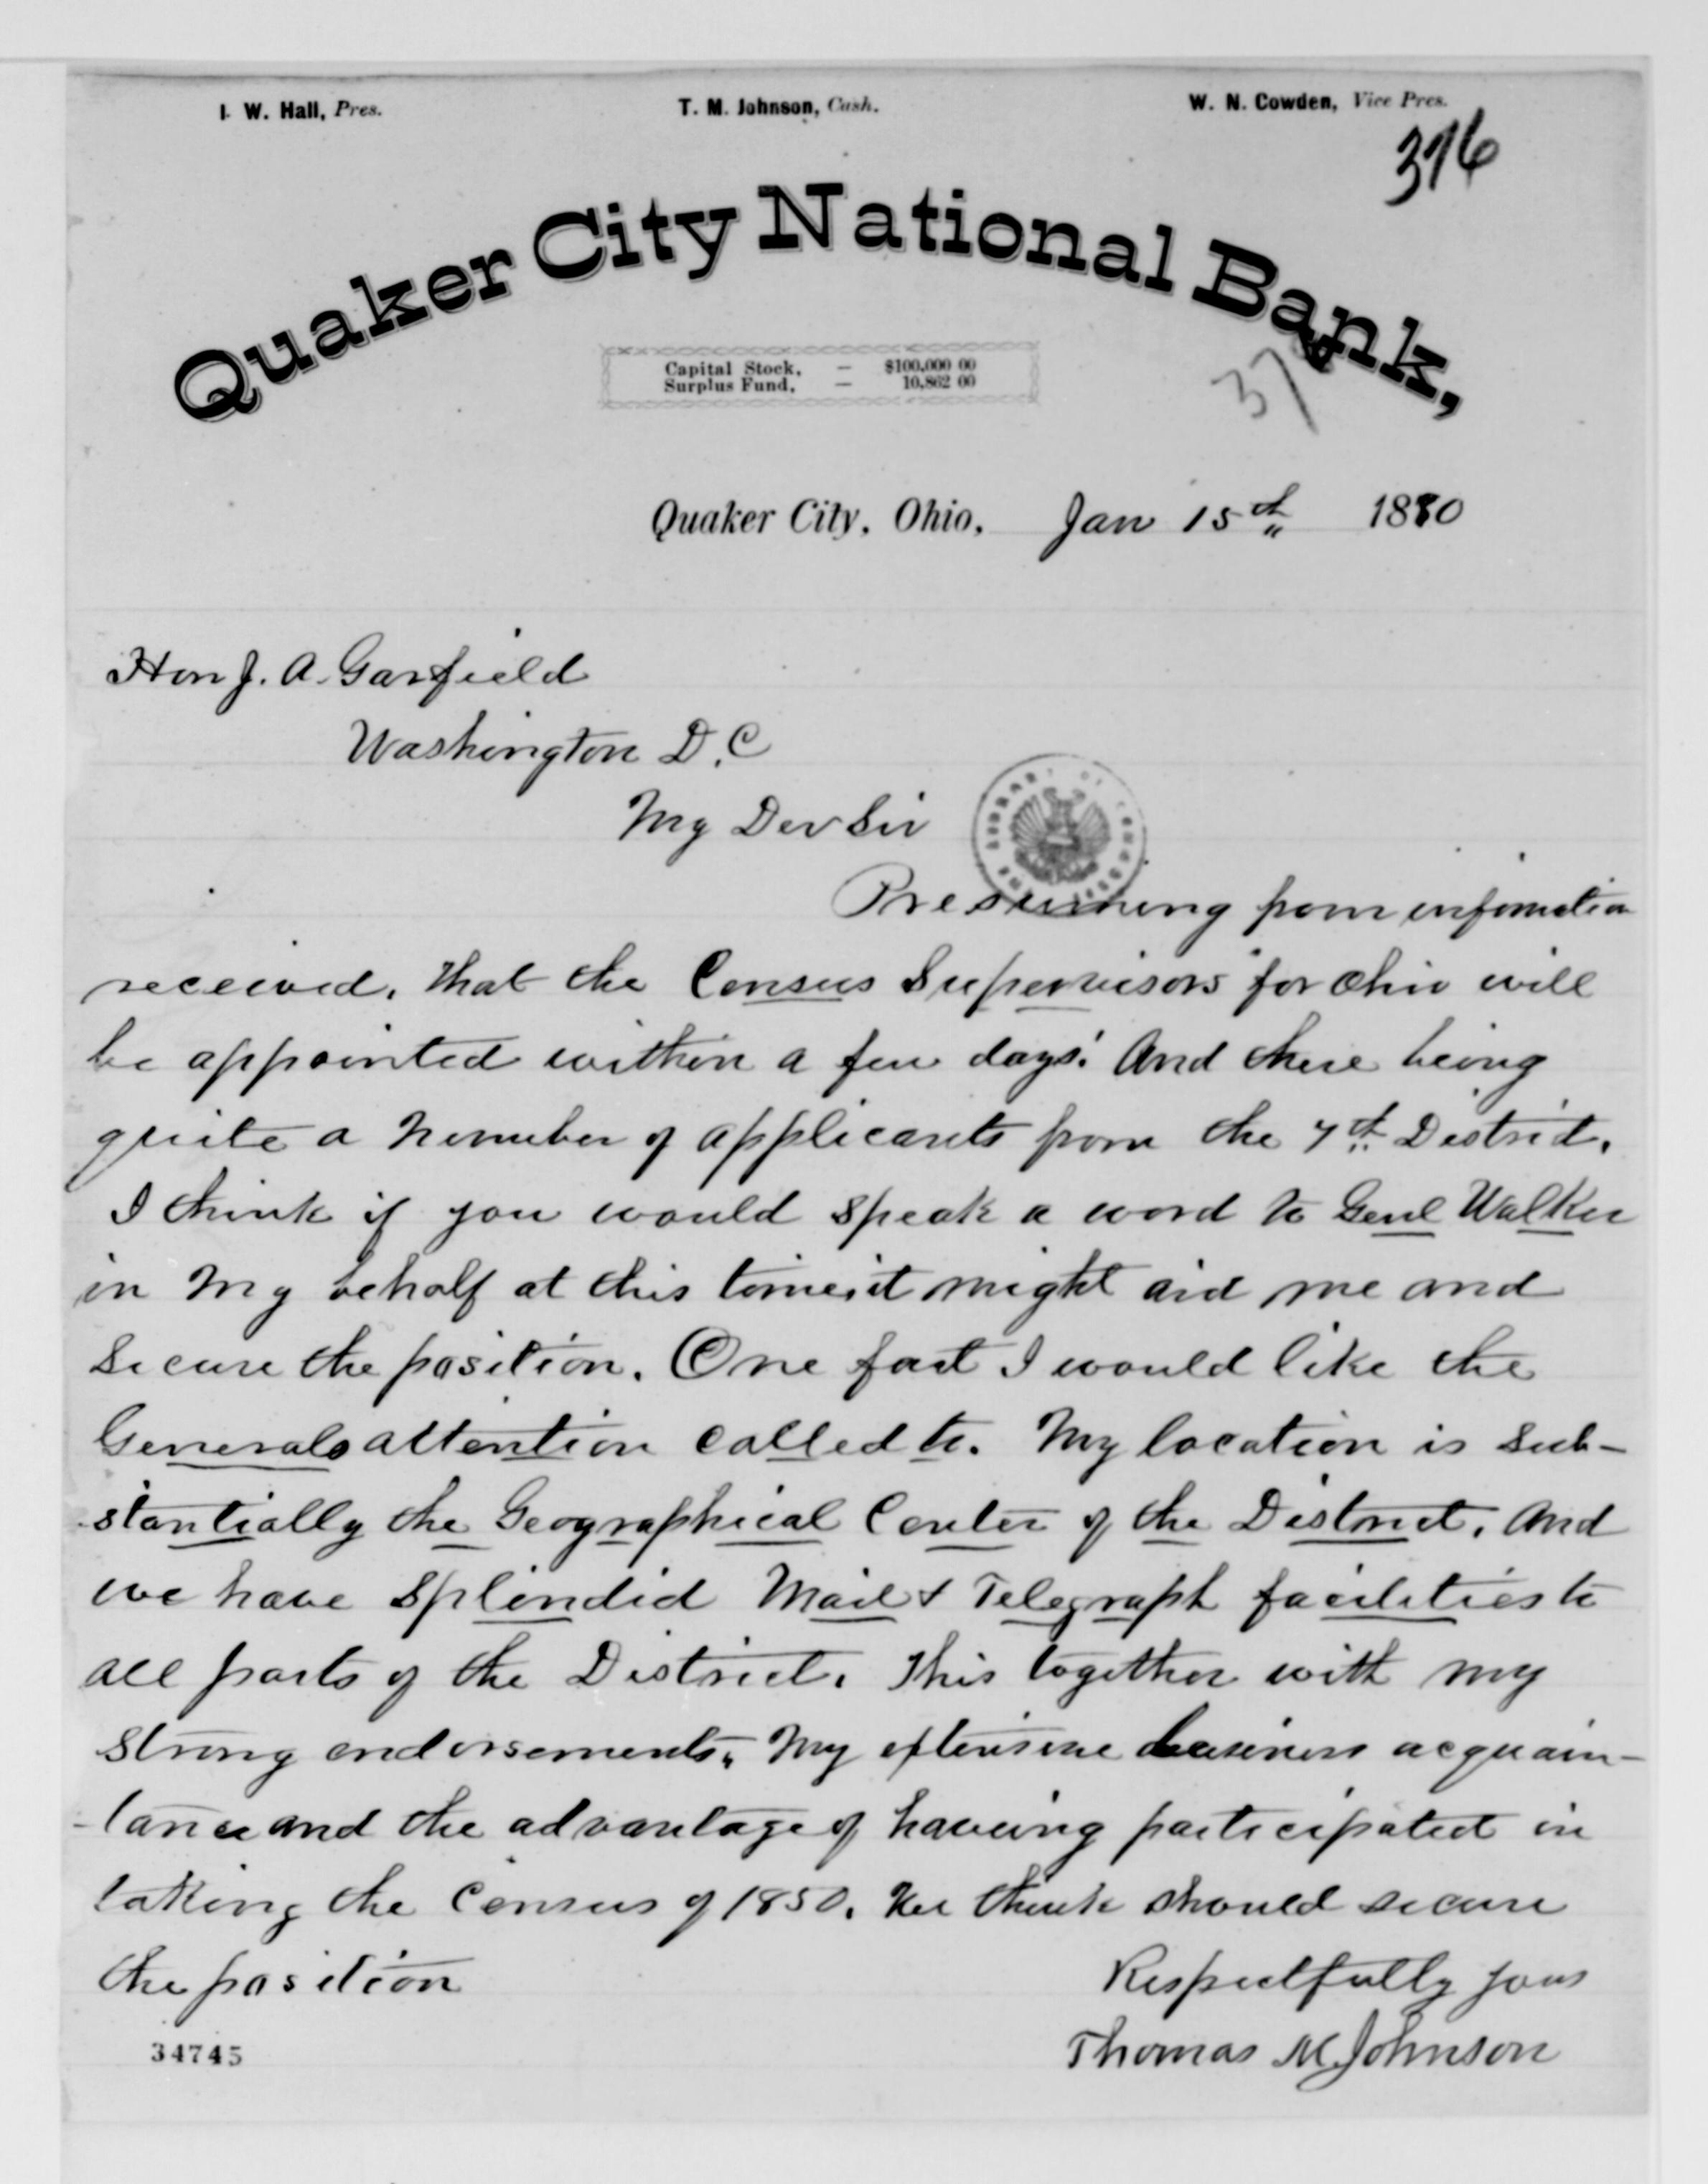 I. W. Hall, Pres. T. M. Johnson, Cash. W. N. Cowden, Vice Pres.
376
Quaker City National Bank,
Capital Stock, — $100,000 00
Surplus Fund, — 10,862 00
37
Quaker City, Ohio, Jan 15th 1880
Hon J. A. Garfield
Washington D.C
My Der Sir
Presuming from infomation
received, that the Census Supervisors for Ohio will
be appointed within a few days. And there being
quite a Number of applicants from the 7th District.
I think if you would speak a word to Genl Walker
in My behalf at this time it might aid me and
secure the position. One fact I would like the
Generals attention called to. My location is sub-
-stantially the Geographical Center of the District. And
we have splendid Mail & Telegraph facilities to
all parts of the District. This together with my
strong endorsements, My extensive business acquain-
-tance and the advantage of having participated in
taking the Census of 1850. We think should secure
the position
Respectfully yours
Thomas M. Johnson
34745